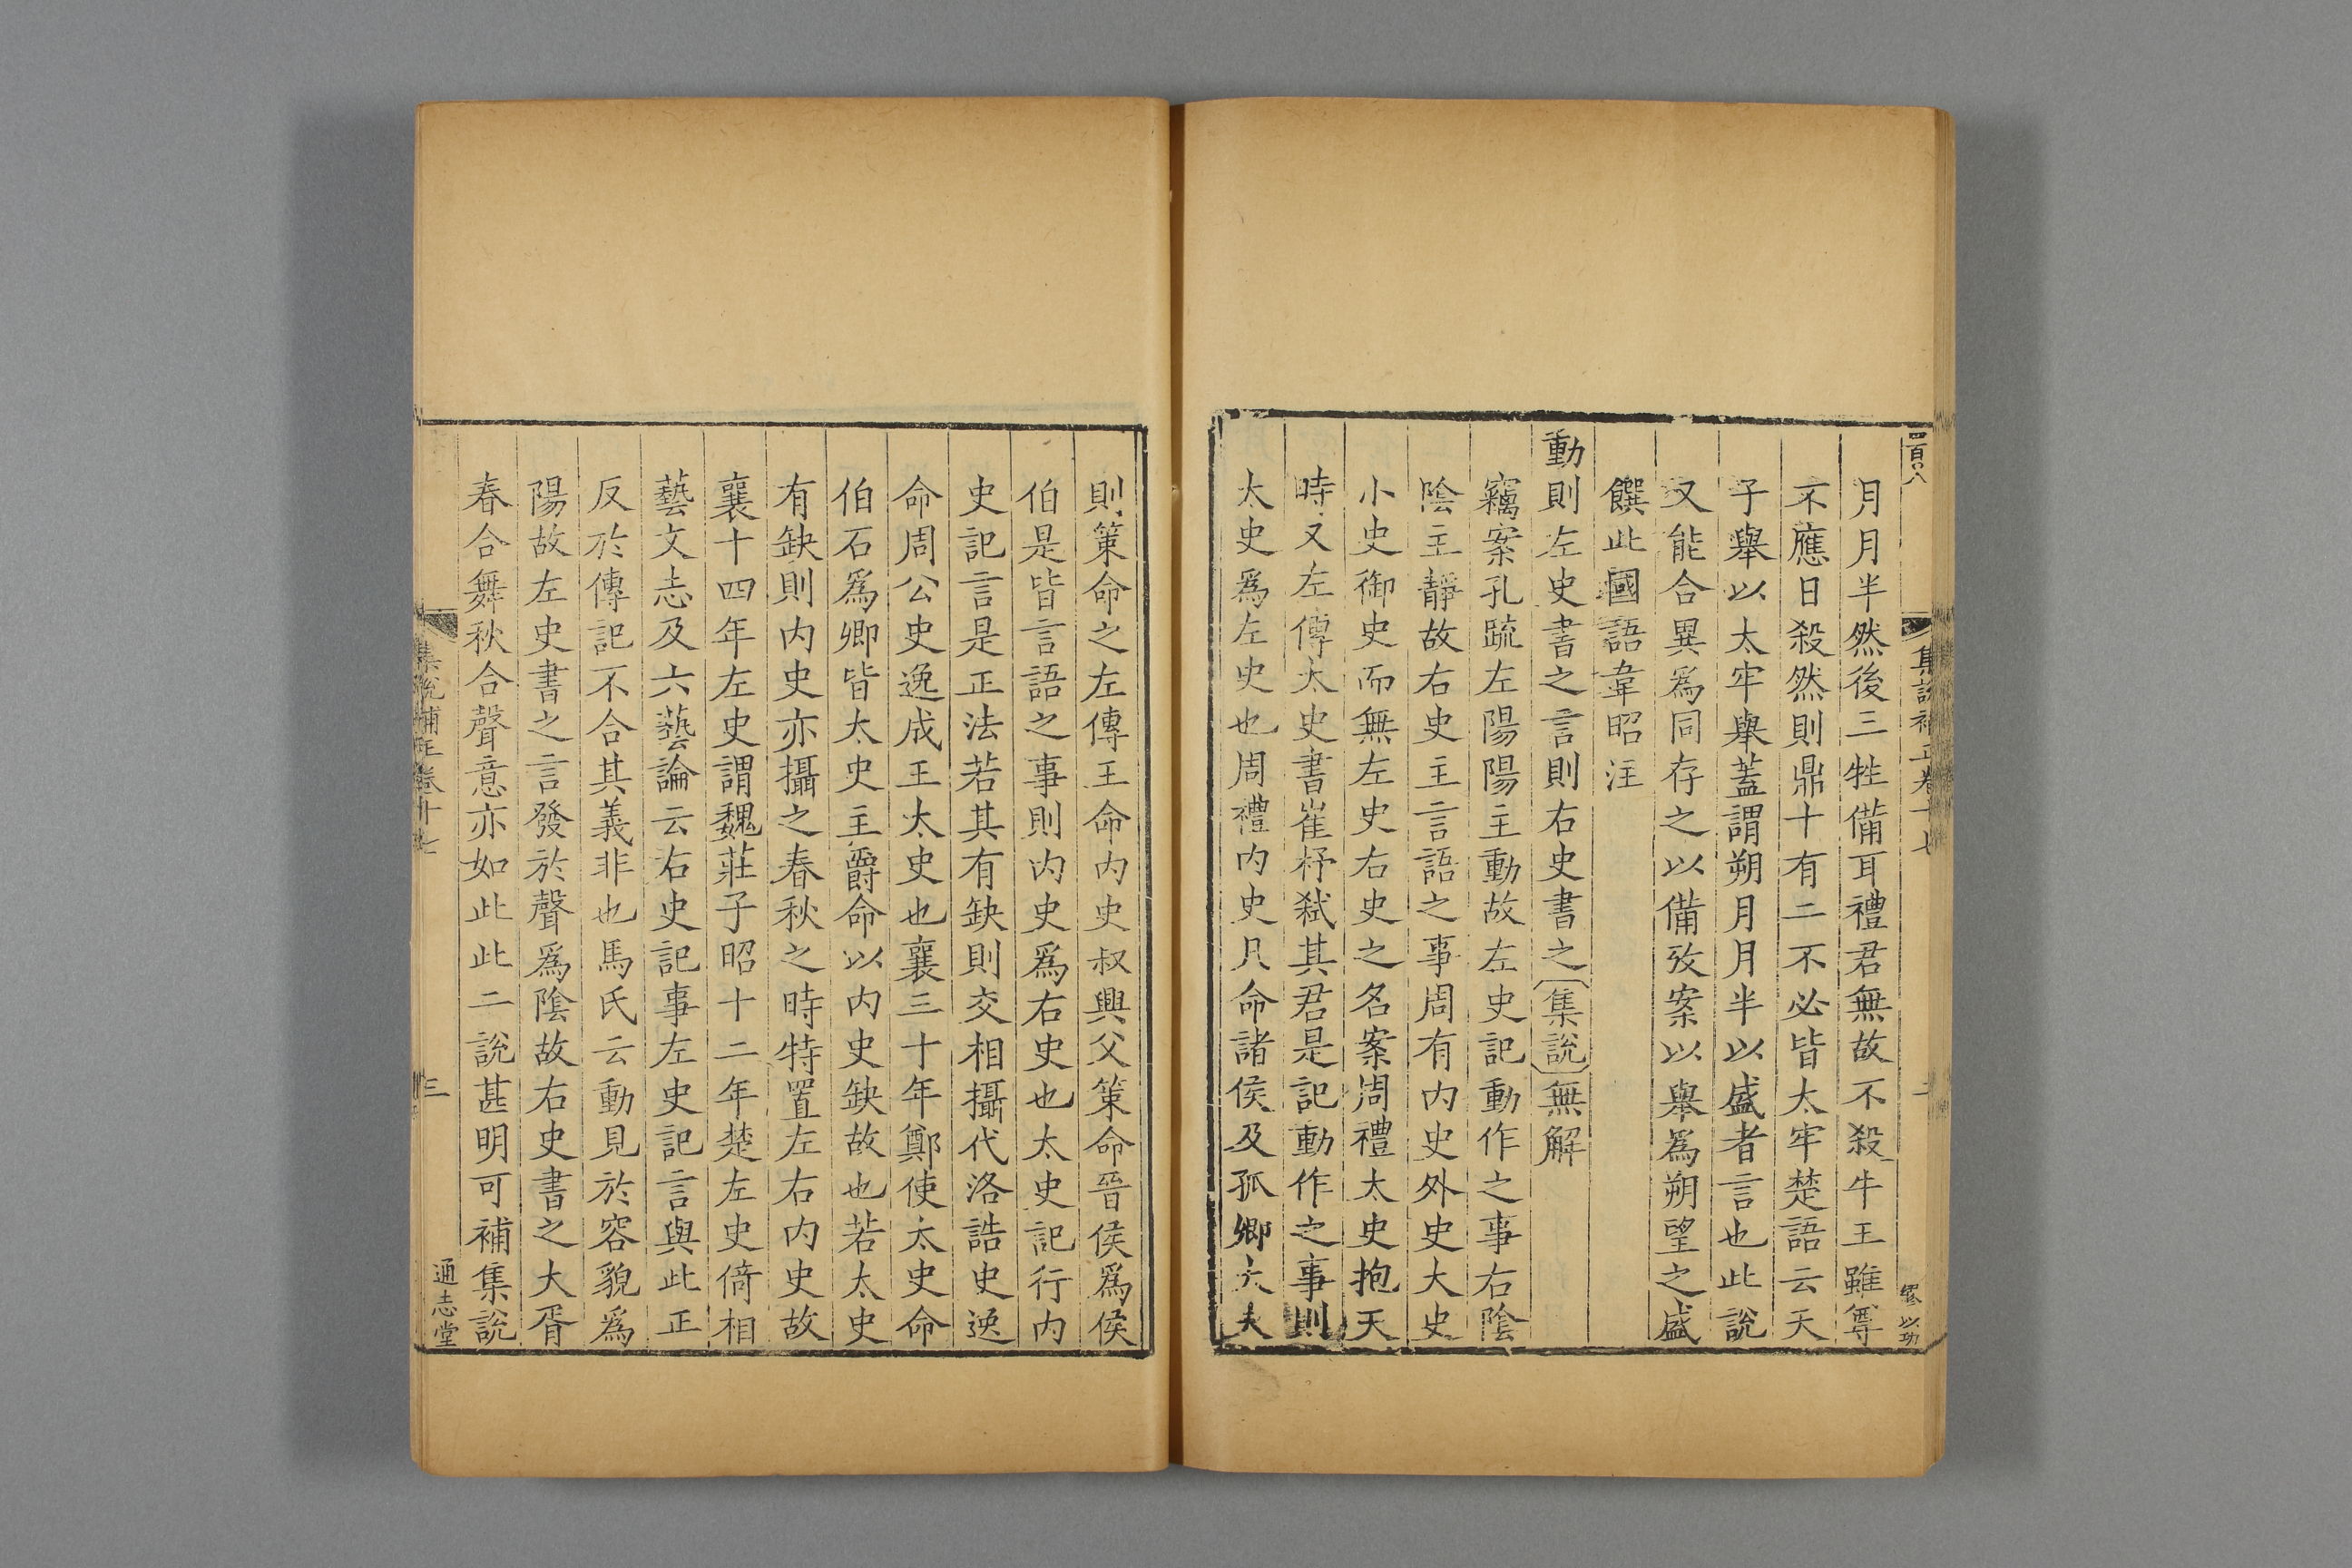 月月半然後三牲備耳禮君無故不殺牛王雖尊
不應日殺然則鼎十有二不必皆太牢楚語云天
子舉以太牢舉蓋謂朔月月半以盛者言也此說
又能合異爲同存之以備攷案以舉爲朔望之盛
饌此國語韋昭注
動則左史書之言則右史書之〔集說〕無解
竊案孔疏左陽陽主動故左史記動作之事右陰
陰主靜故右史主言語之事周有內史外史大史
小史御史而無左史右史之名案周禮太史抱天
時又左傳太史書崔杼弒其君是記動作之事則
太史爲左史也周禮內史凡命諸侯及孤卿大夫
則策命之左傳王命內史叔興父策命晉侯爲侯
伯是皆言語之事則內史爲右史也太史記行內
史記言是正法若其有缺則交相攝代洛誥史逸
命周公史逸成王太史也襄三十年鄭使太史命
伯石爲卿皆太史主爵命以內史缺故也若太史
有缺則內史亦攝之春秋之時特置左右內史故
襄十四年左史謂魏莊子昭十二年楚左史倚相
藝文志及六藝論云右史記事左史記言與此正
反於傳記不合其義非也馬氏云動見於容貌爲
陽故左史書之言發於聲爲陰故右史書之大胥
春合舞秋合聲意亦如此此二說甚明可補集說
集說補正卷十七
三
通志堂